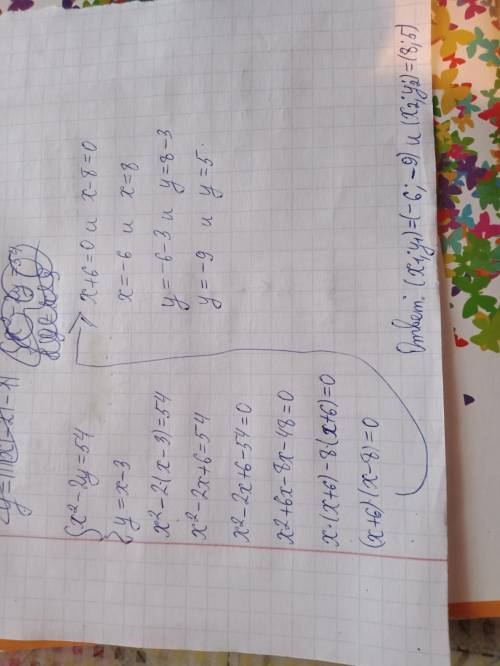 {x²-2y=54
{y=x-3
x²-2(x-3)=54
x²-2x+6=54
x²-2x+6-54=0
x²+6x-8x-48=0
x·(x+6)-8(x+6)=0
(x+6)(x-8)=0
x+6=0 и x-8=0
x=-6 и x=8
y=-6-3 и y=8-3
y=-9 и y=5.
Ответ: (x₁;y₁)=(-6;-9) и (x₂;y₂)=(8;5)